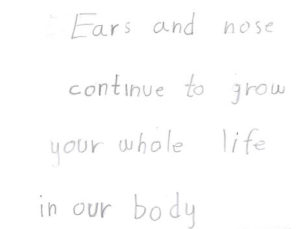 Ears and nose
continue to grow
your whole life
in our body